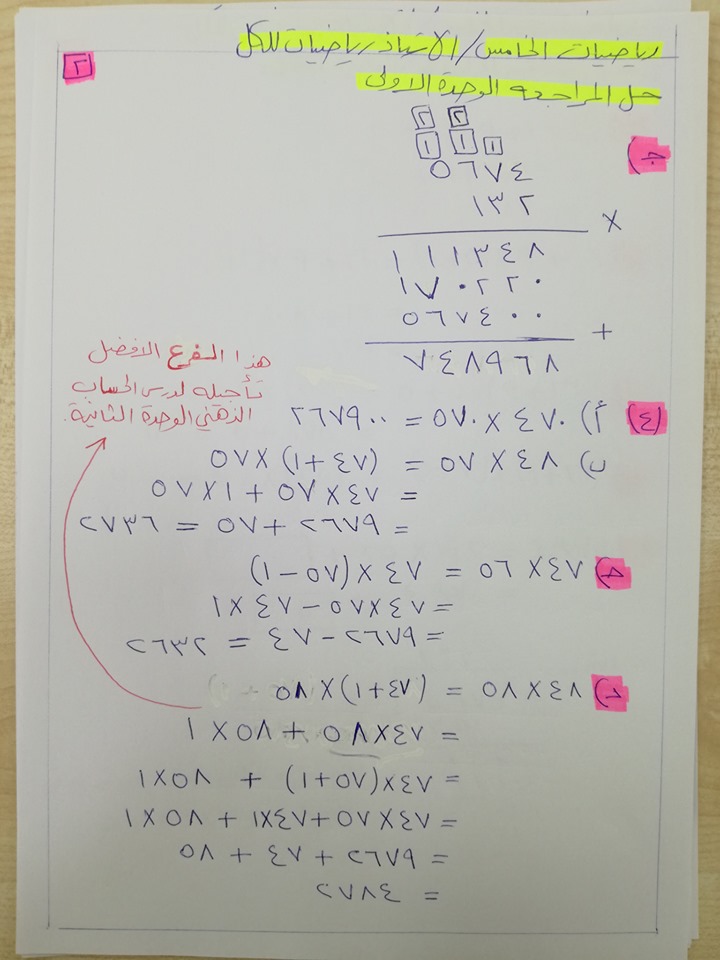 رياضيات الخامس / الاستاذ رياضيات للكل
٢
حل المراجعه الوحدة الاولى
٢ ٢
١ ١ ١
ج) ٥٦٧٤
١٣٢ ×
١١١٣٤٨
١٧٠٢٢٠
٥٦٧٤٠٠ +
٧٤٨٩٦٨
هذا الفرع الافضل
تأجيله لدرس الحساب
الذهني الوحدة الثانية.
٤) أ) ٤٧٠ × ٥٧٠ = ٢٦٧٩٠٠
ب) ٤٨ × ٥٧ = (٤٧+١) × ٥٧
= ٤٧ × ٥٧ + ١ × ٥٧
= ٢٦٧٩ + ٥٧ = ٢٧٣٦
ج) ٤٧ × ٥٦ = ٤٧ × (٥٧ − ١)
= ٤٧ × ٥٧ − ٤٧ × ١
= ٢٦٧٩ − ٤٧ = ٢٦٣٢
د) ٤٨ × ٥٨ = (٤٧+١) × ٥٨
= ٤٧ × ٥٨ + ٥٨ × ١
= ٤٧ × (٥٧+١) + ٥٨ × ١
= ٤٧ × ٥٧ + ٤٧ × ١ + ٥٨ × ١
= ٢٦٧٩ + ٤٧ + ٥٨
= ٢٧٨٤